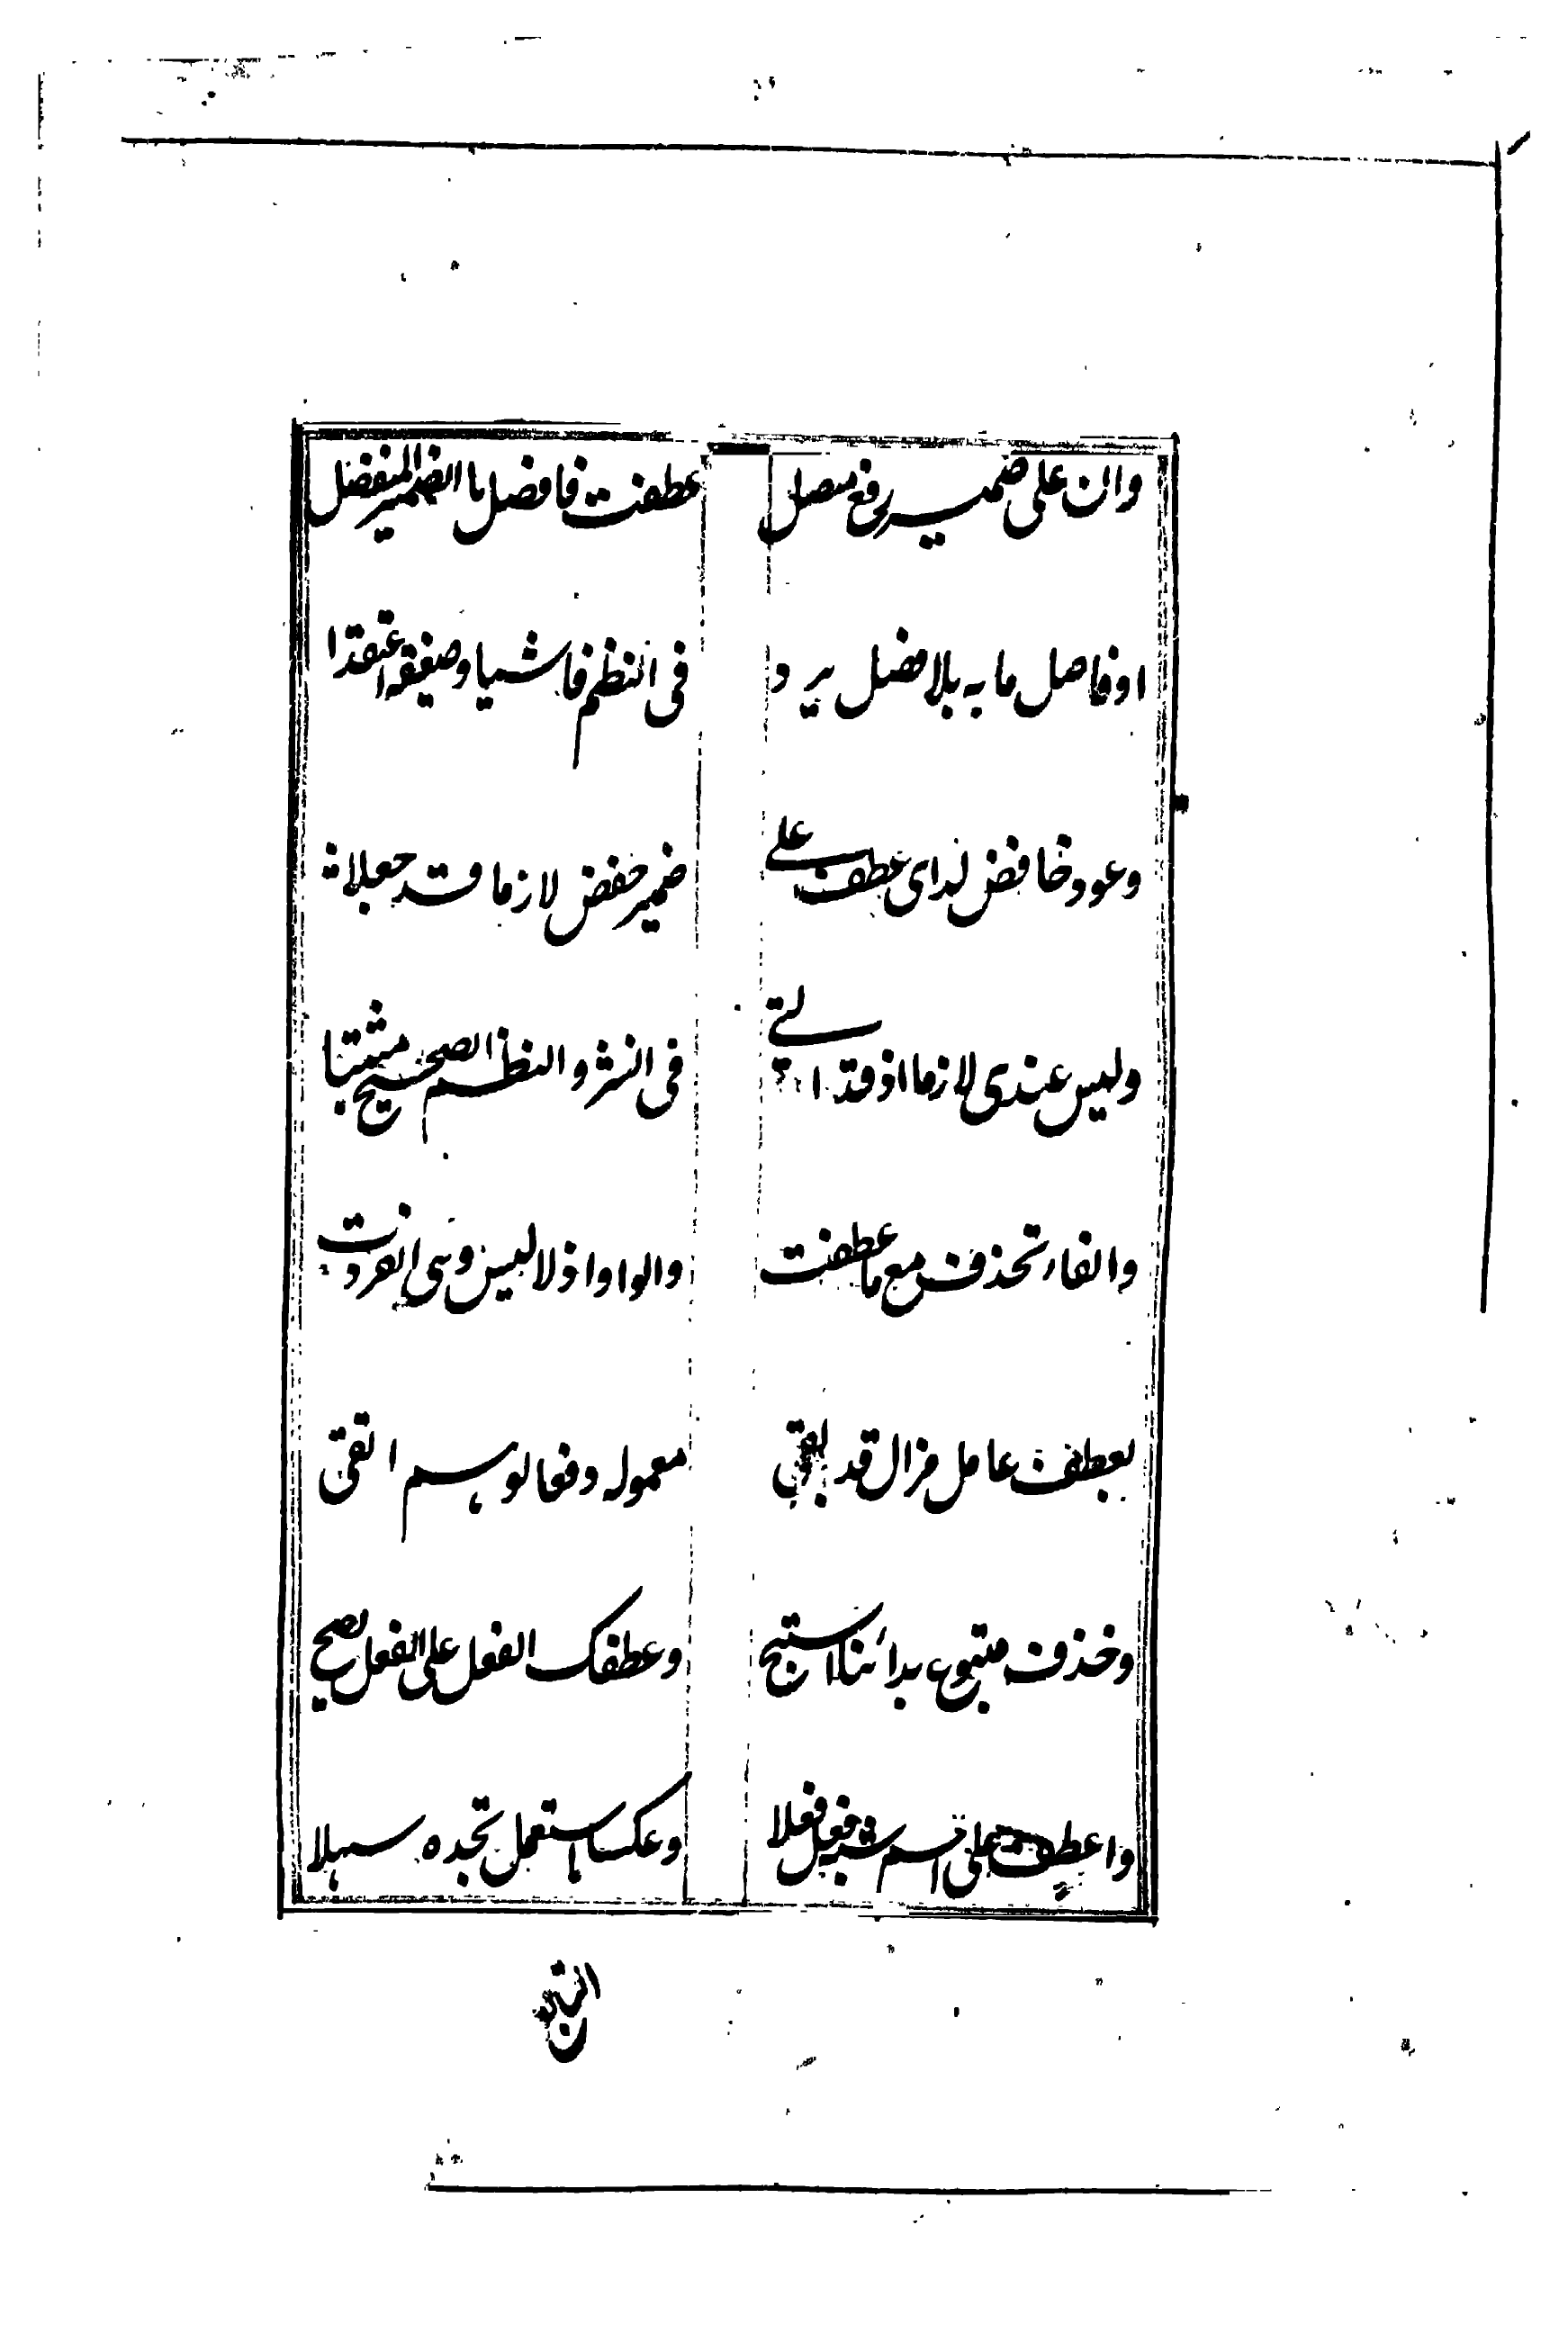 وان علی ضمیر رفع متصل عطفت فافصل باالضمیر المنفصل
او فاصل ما به بلا فصل یرد فی النظم فاشیا وضعفه اعتقدا
وعود خافض لدای عطف علی ضمیر خفض لازما قد جعلا
ولیس عندی لازما اذ قد اتی فی النثر والنظم الصحیح مثبتا
والفاء تحذف مع ما عطفت والواو اذ لا لبس وهی انفردت
بعطف عامل مزال قد بقی معموله دفعا لوهم اتقی
وحذف متبوع بدا هنا استبح وعطفک الفعل علی الفعل یصح
واعطف علی اسم شبه فعل فعلا وعکسا استعمل تجده سهلا
التابع